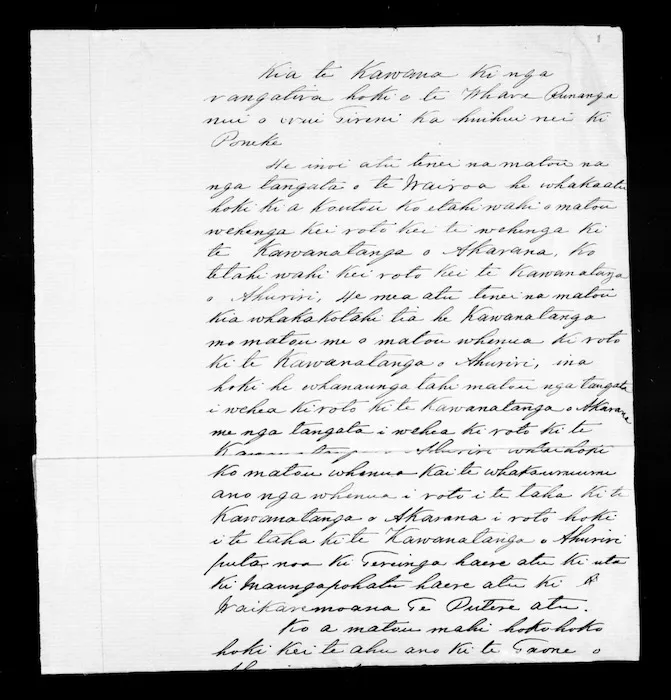 1
Kia te Kawana ki nga
rangatira hoki o te Whare Runanga
nui o nui Tireni ka huihui nei ki
Poneke
He inoi atu tenei na matou na
nga tangata o te Wairoa he whakaatu
hoki ki a koutou ko etahi wahi o matou
wehenga kei roto kei te wehenga ki
te Kawanatanga o Akarana, ko
tetahi wahi kei roto kei te Kawanatanga
o Ahuriri, He mea atu tenei na matou
kia whakakotahi tia he Kawanatanga
mo matou me o matou whenua ki roto
ki te Kawanatanga o Ahuriri, ina
hoki he whanaunga tahi matou nga tangata
i wehea ki roto ki te Kawanatanga o Akarana
me nga tangata i wehea ki roto ki te
Ahuriri
ko matou whenua kai te whakauruuru
ano nga whenua i roto i te taha ki te
Kawanatanga o Akarana i roto hoki
i te taha ki te Kawanatanga o Ahuriri
puta noa ki Tereinga haere atu ki uta
ki Maungapohatu haere atu ki
Waikaremoana Te Putere atu.
Ko a matou mahi hokohoko
hoki kei te ahu ano ki te Taone o